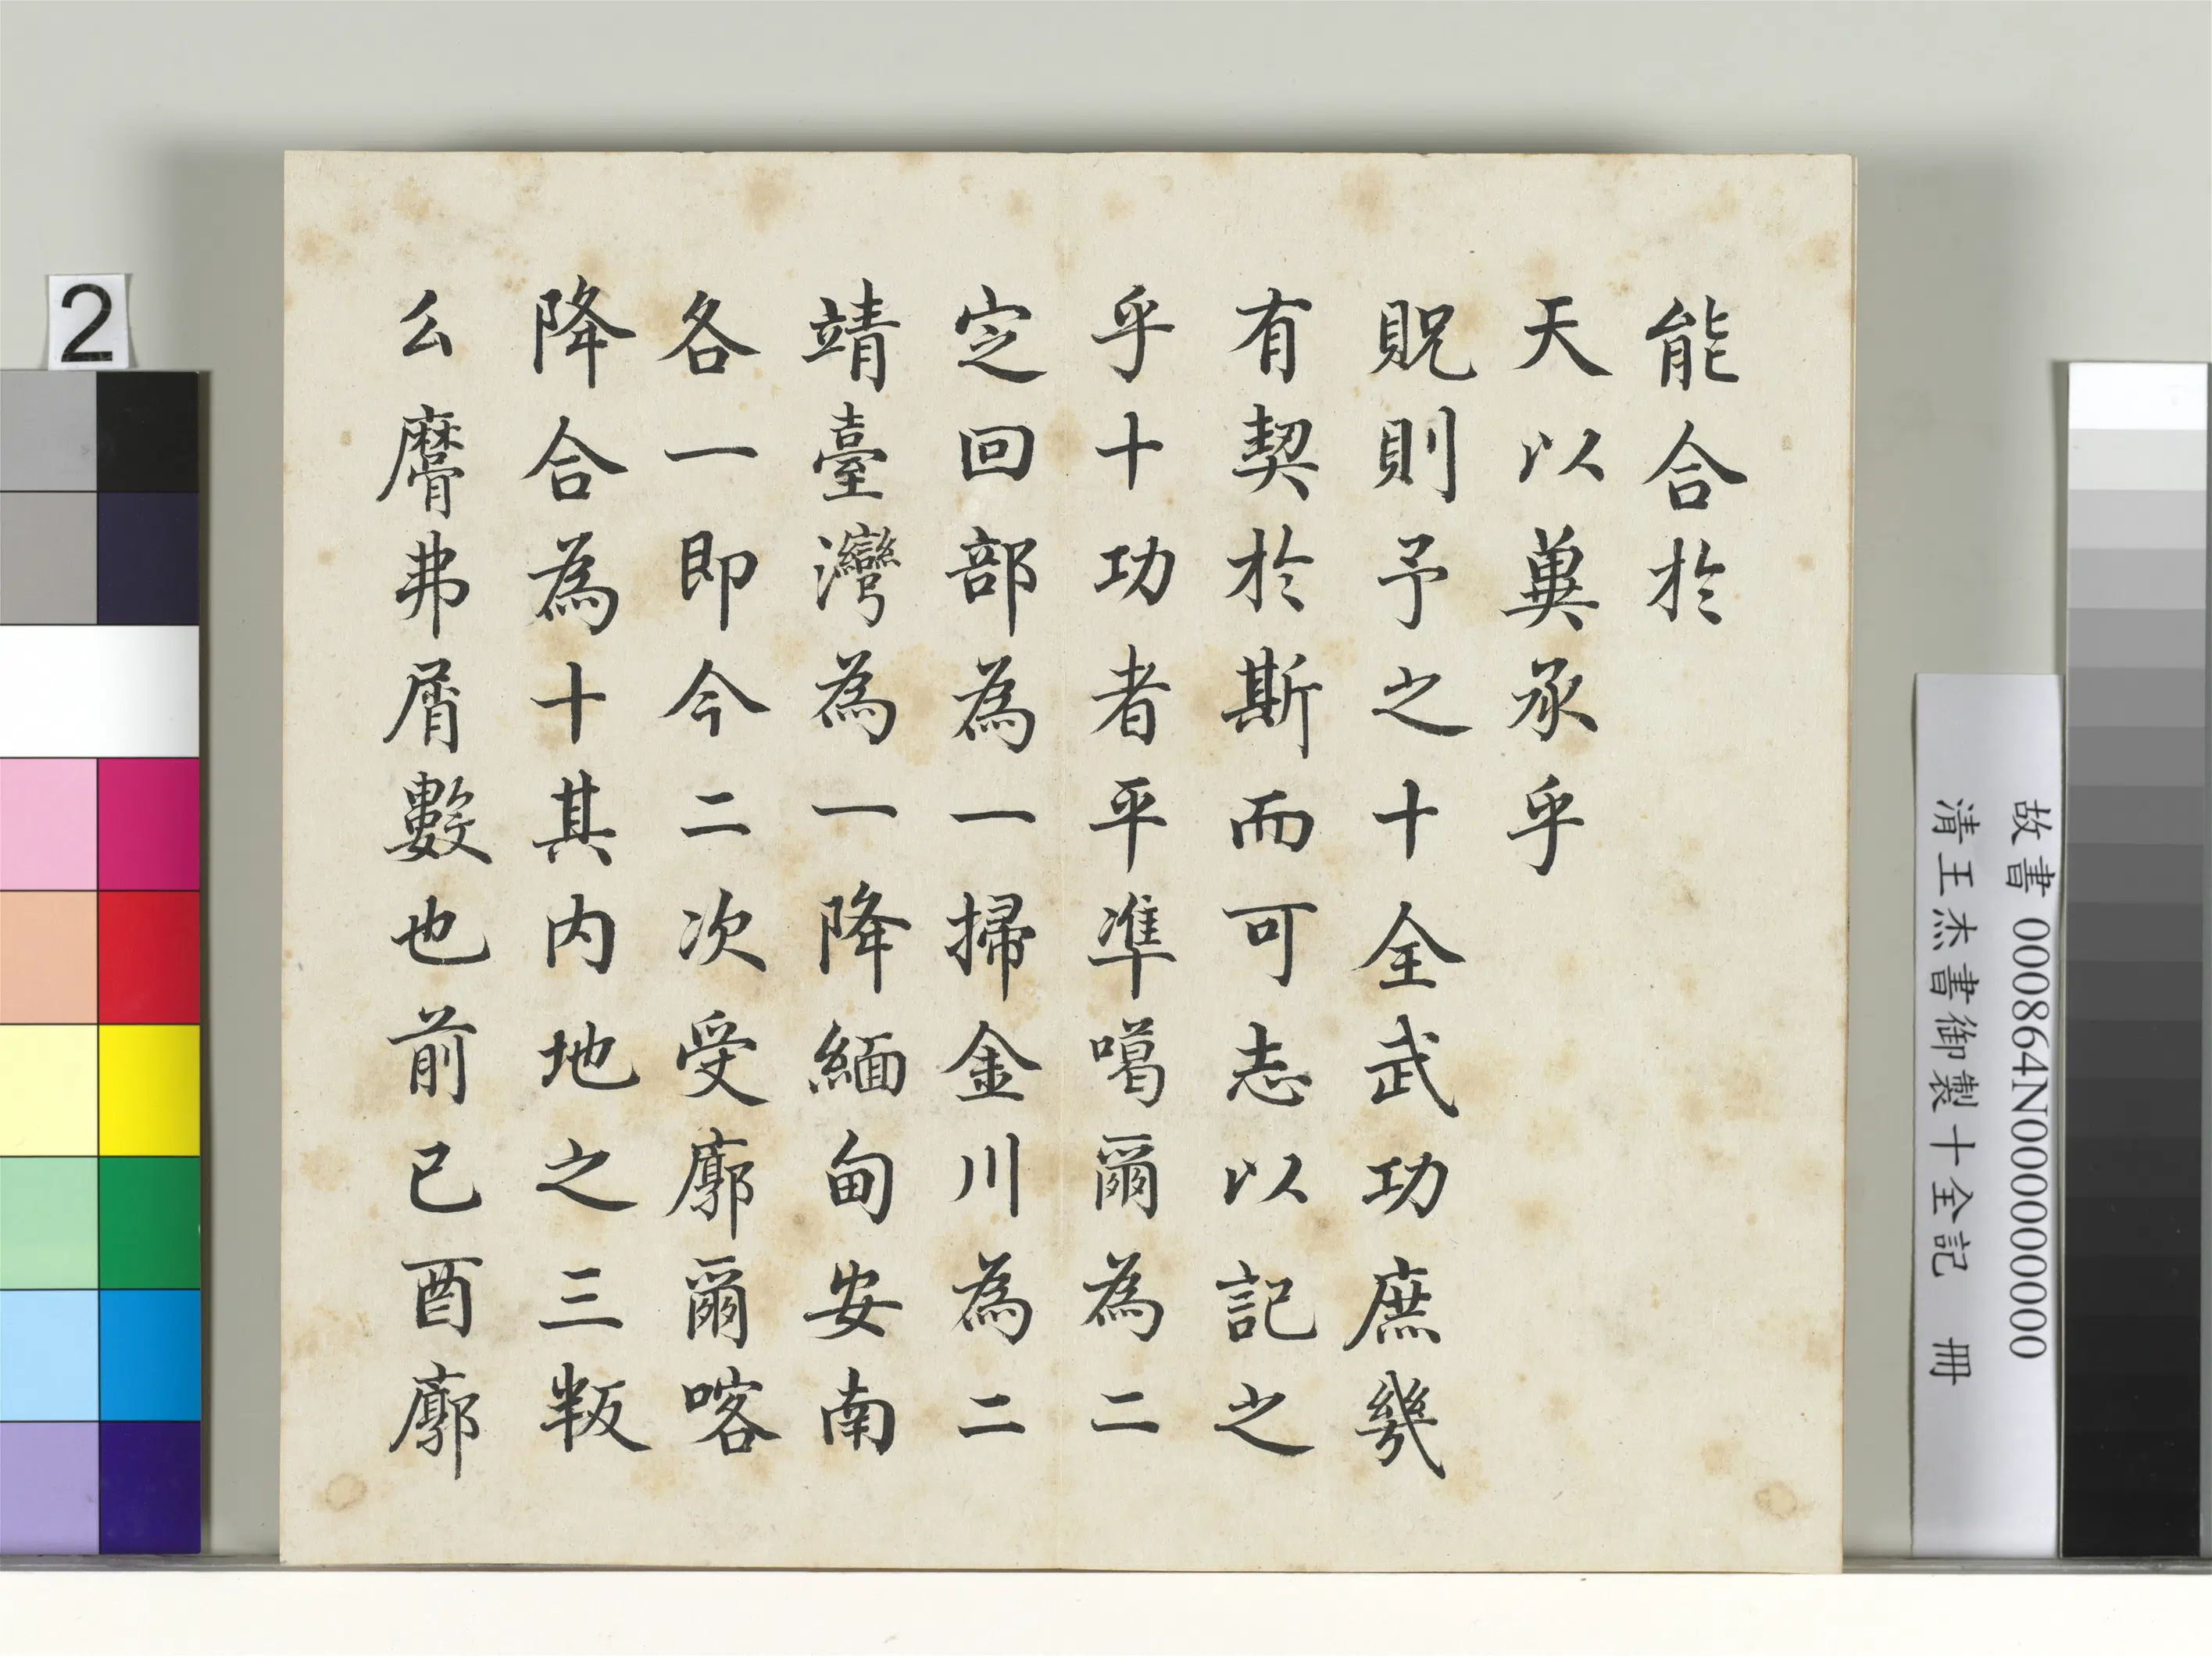 能合於
天以冀承乎
貺則予之十全武功庶幾
有契於斯而可志以記之
乎十功者平準噶爾為二
定回部為一掃金川為二
靖臺灣為一降緬甸安南
各一即今二次受廓爾喀
降合為十其內地之三叛
么膺弗屑數也前己酉廓
2
故書 000864N000000000
清王杰書御製十全記 冊